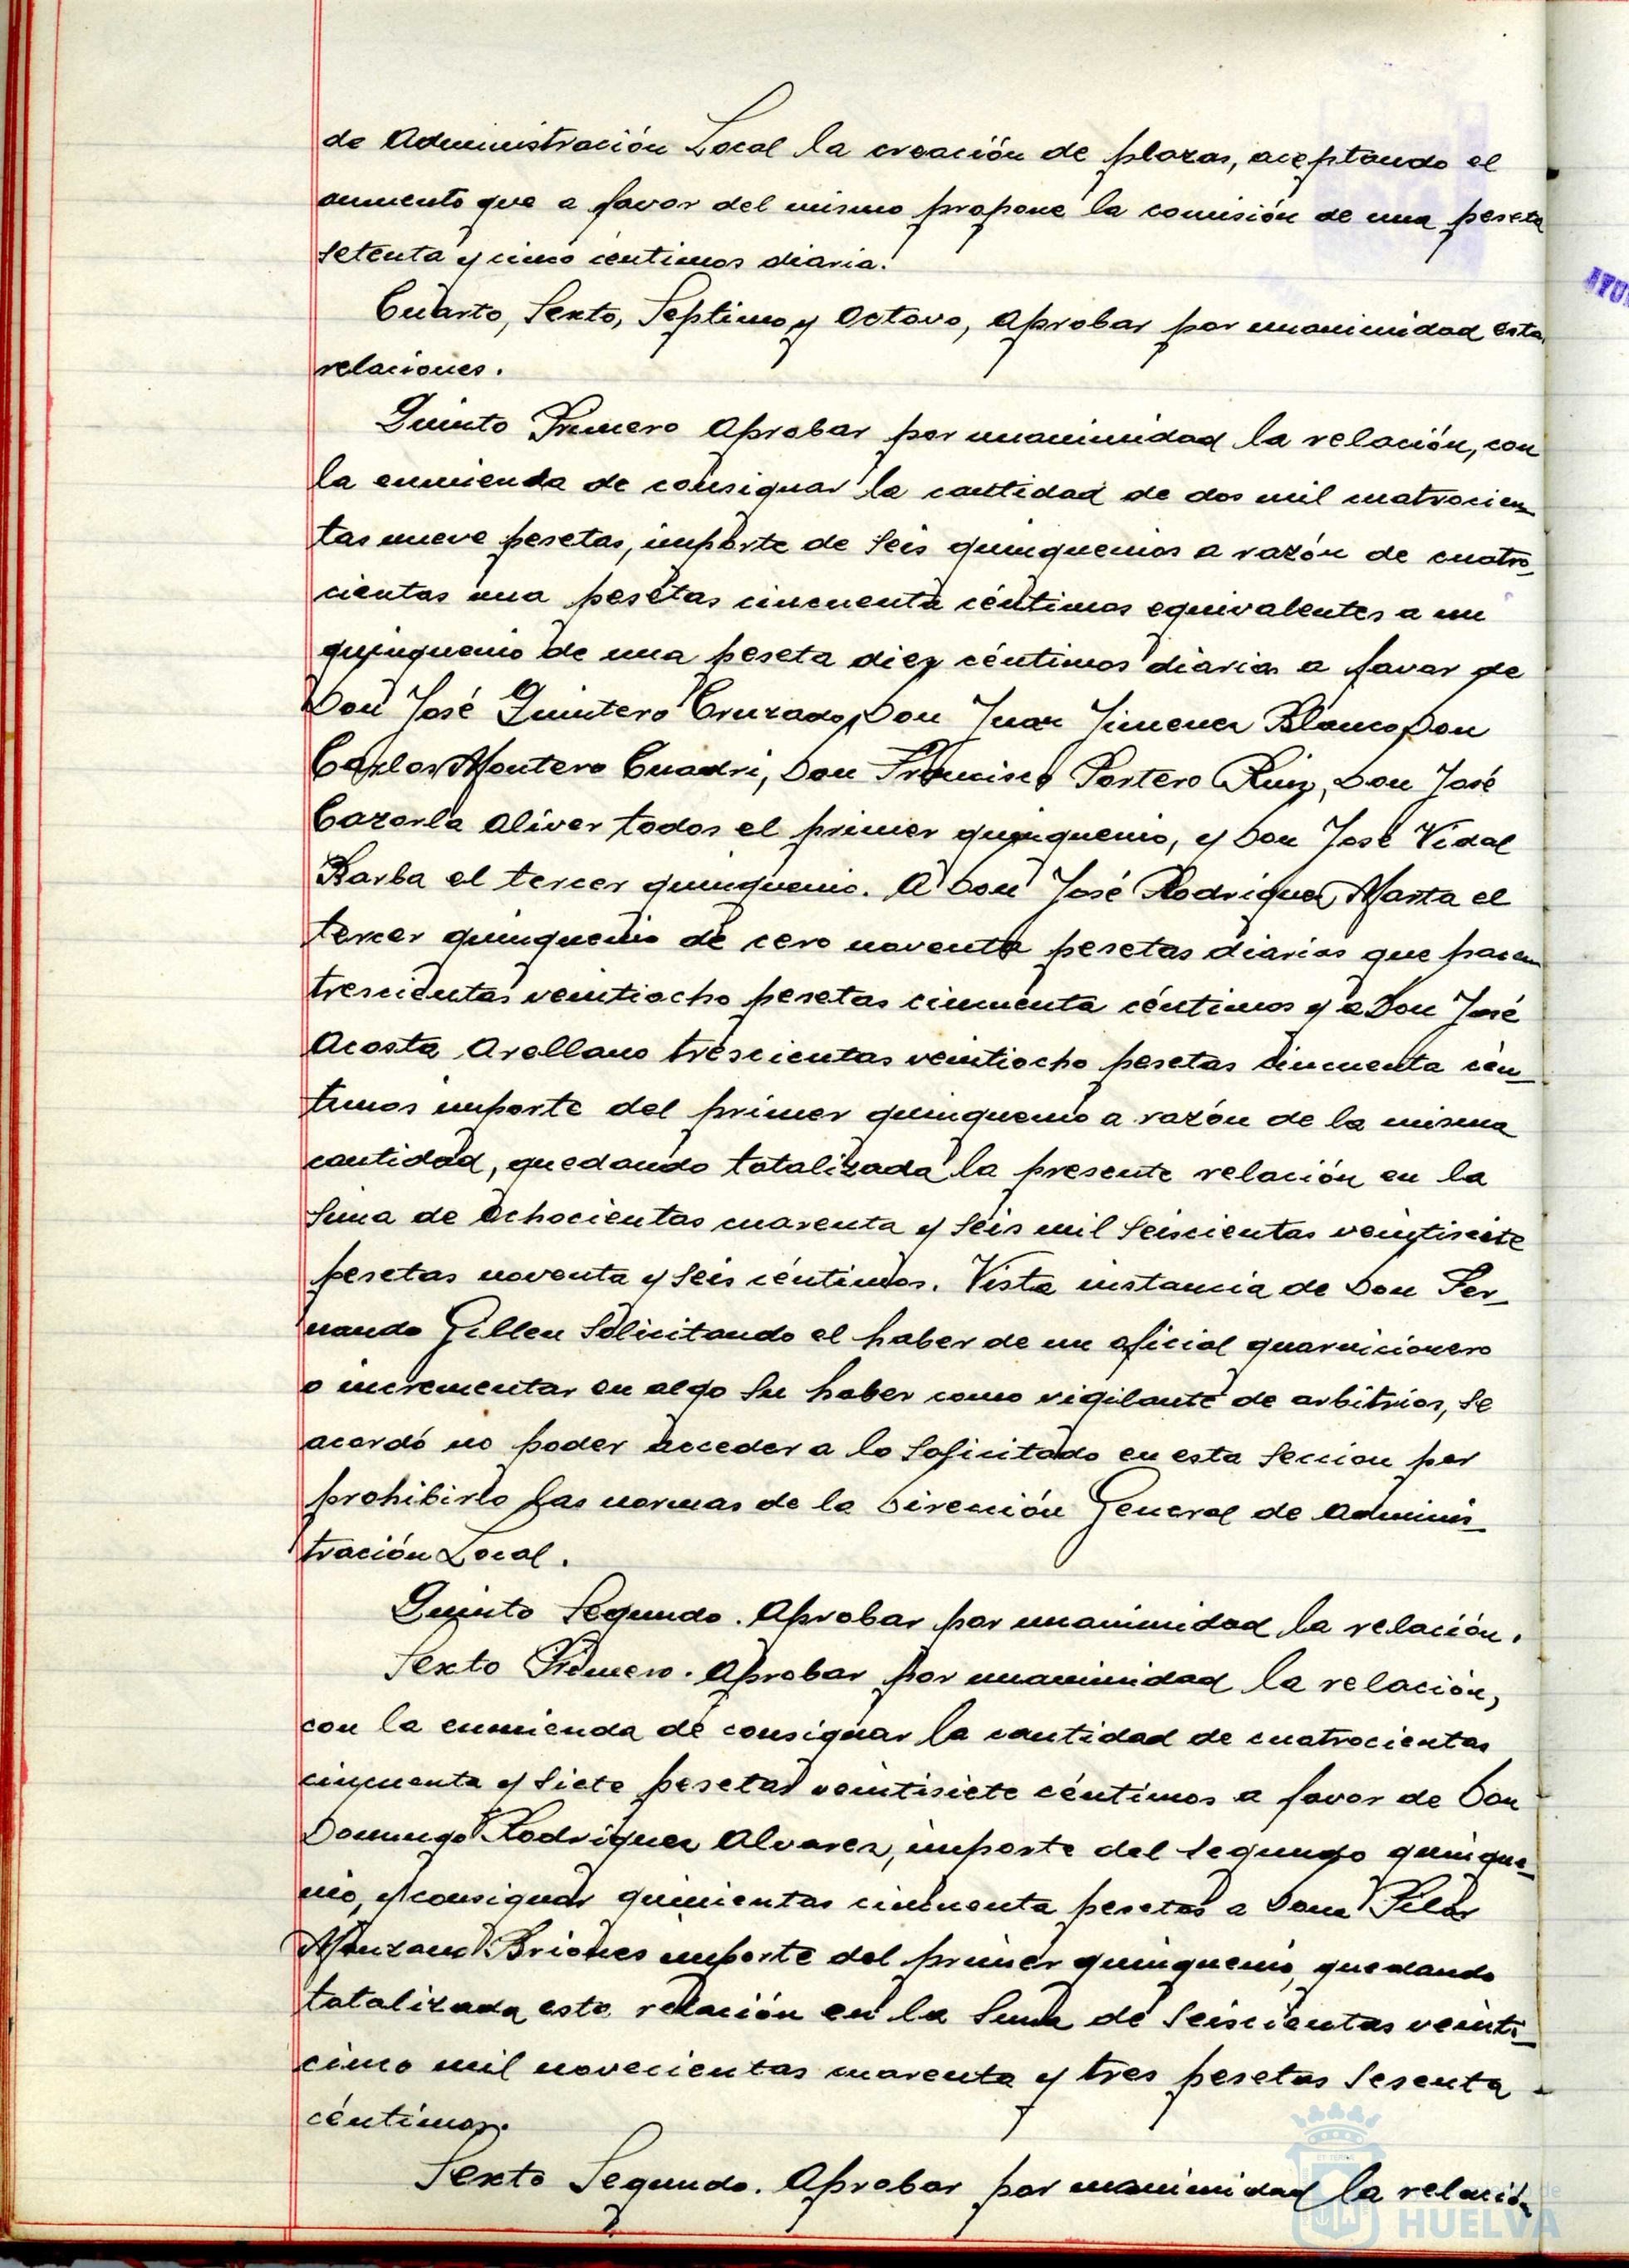 de Administración Local la creación de plazas, aceptando el
aumento que a favor del mismo propone la comisión de una peseta
setenta y cinco centimos diaria.
Cuarto, Sexto, Septimo y Octavo, Aprobar por unanimidad esta
relaciones.
Quinto Primero Aprobar por unanimidad la relación, con
la enmienda de consignar la cantidad de dos mil cuatrocien
tas nueve pesetas, importe de seis quinquenios a razón de cuatro_
cientas una pesetas cincuenta céntimos equivalentes a un
quinquenio de una peseta diez céntimos diarios a favor de
Don José Quintero Cruzado, Don Juan Jimenez Blanco, Don
Carlos Montero Cuadri, Don Francisco Portero Ruiz, Don José
Cazorla Oliver todos el primer quinquenio, y Don José Vidal
Barba el tercer quinquenio. A Don José Rodriguez Marta el
tercer quinquenio de cero noventa pesetas diarias que hacen
trescientas veintiocho pesetas cincuenta céntimos y a Don José
Acosta Arellano trescientas veintiocho pesetas cincuenta cén_
timos importe del primer quinquenio a razón de la misma
cantidad, quedando totalizada la presente relación en la
suma de ochocientas cuarenta y seis mil seiscientas veintisiete
pesetas noventa y seis céntimos. Vista instancia de Don Fer_
nando Gillen solicitando el haber de un oficial guarnicionero
o incrementar en algo su haber como vigilante de arbitrios, se
acordó no poder acceder a lo solicitado en esta seccion por
prohibirlo las normas de la Dirección General de Adminis_
tración Local.
Quinto Segundo. Aprobar por unanimidad la relación.
Sexto Primero. Aprobar por unanimidad la relación,
con la enmienda de consignar la cantidad de cuatrocientas
cincuenta y siete pesetas veintisiete céntimos a favor de Don
Domingo Rodriguez Alvarez, importe del segundo quinque_
nio, y consignar quinientas cincuenta pesetas a Dona Pilar
Manzano Briones importe del primer quinquenio, quedando
totalizada esta relación en la suma de seiscientas veinti_
cinco mil novecientas cuarenta y tres pesetas sesenta
céntimos.
Sexto Segundo. Aprobar por unanimidad la relación
de
HUELVA